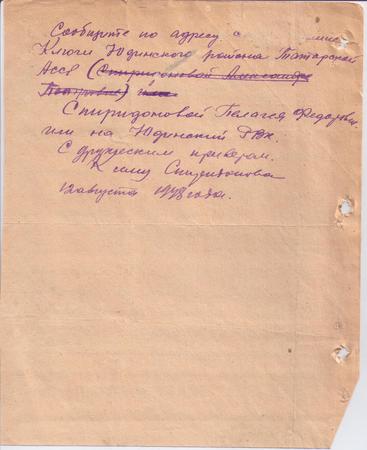 Сообщите по адресу с
Ключи Юдинского района Татарской
Асср (Спиридоновой Александре
Петровне) или
Спиридоновой Пелагея Федоровн
или на Юдинский РВК.
С дружеским приветом.
К сему Спиридонова
12 августа 1948 года.